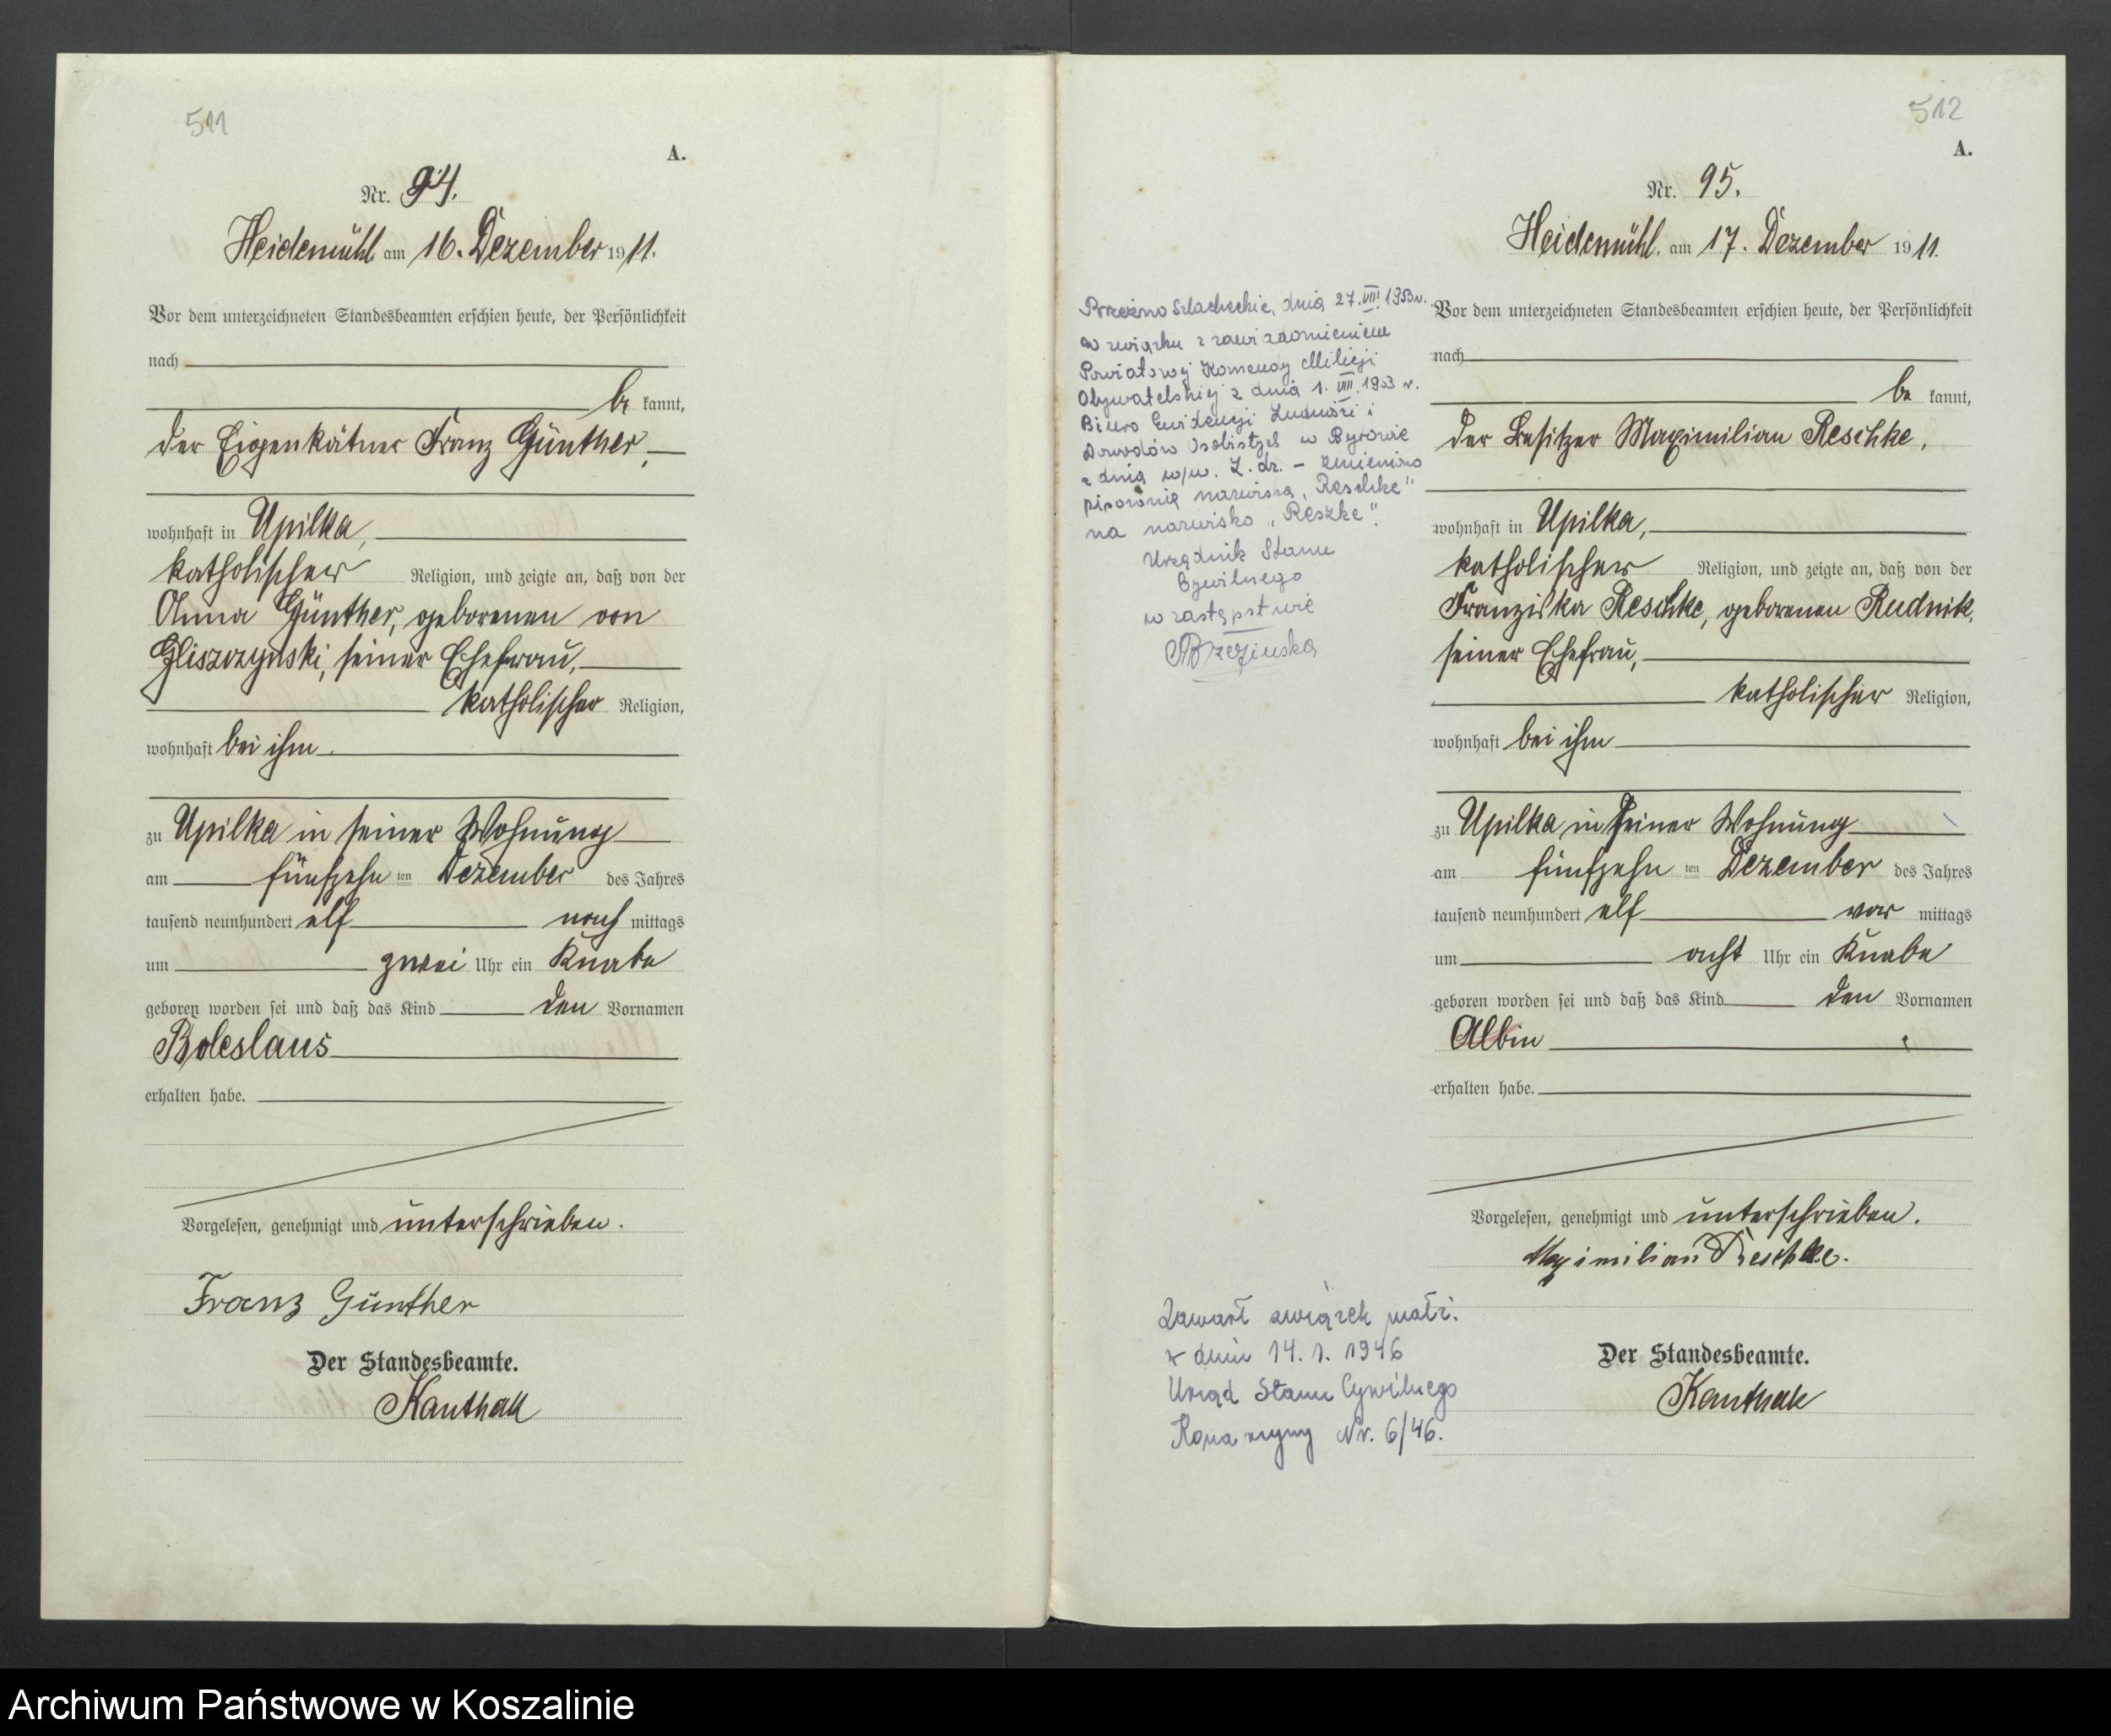 511
A.
Nr. 94.
Heidemühl am 16. Dezember 1911.
Vor dem unterzeichneten Standesbeamten erschien heute, der Persönlichkeit
nach
be kannt,
der Eigenkätner Franz Günther,
wohnhaft in Upilka,
katholischer Religion, und zeigte an, daß von der
Anna Günther, geborenen von
Gliszczynski, seiner Ehefrau,
katholischer Religion,
wohnhaft bei ihm
zu Upilka in seiner Wohnung
am fünfzehn ten Dezember des Jahres
tausend neunhundert elf nach mittags
um zwei Uhr ein Knabe
geboren worden sei und daß das Kind den Vornamen
Boleslaus
erhalten habe.
Vorgelesen, genehmigt und unterschrieben.
Franz Günther
Der Standesbeamte.
Kanthak
512
A.
Nr. 95.
Heidemühl. am 17. Dezember 1911.
Vor dem unterzeichneten Standesbeamten erschien heute, der Persönlichkeit
nach
be kannt,
der Besitzer Maximilian Reschke,
wohnhaft in Upilka,
katholischer Religion, und zeigte an, daß von der
Franziska Reschke, geborenen Rudnik,
seiner Ehefrau,
katholischer Religion,
wohnhaft bei ihm
zu Upilka in seiner Wohnung
am fünfzehn ten Dezember des Jahres
tausend neunhundert elf vor mittags
um acht Uhr ein Knabe
geboren worden sei und daß das Kind den Vornamen
Albin
erhalten habe.
Vorgelesen, genehmigt und unterschrieben.
Maximilian Reschke.
Der Standesbeamte.
Kanthak
Brzeźno Szlacheckie, dnia 27.VIII.1953r.
W związku z zawiadomieniem
Powiatowej Komendy Milicji
Obywatelskiej z dnia 1.VIII.1953 r.
Biuro Ewidencji Ludności i
Dowodów Osobistych w Bytowie
z dnia w/w. L.dz. - zmieniono
pisownię nazwiska „Reschke"
na nazwisko „Reszke".
Urzędnik Stanu
Cywilnego
w zastępstwie
Brzezinska
Zawarł związek małż.
w dniu 14. 1. 1946
Urząd Stanu Cywilnego
Konarzyny Nr. 6/46.
Archiwum Państwowe w Koszalinie